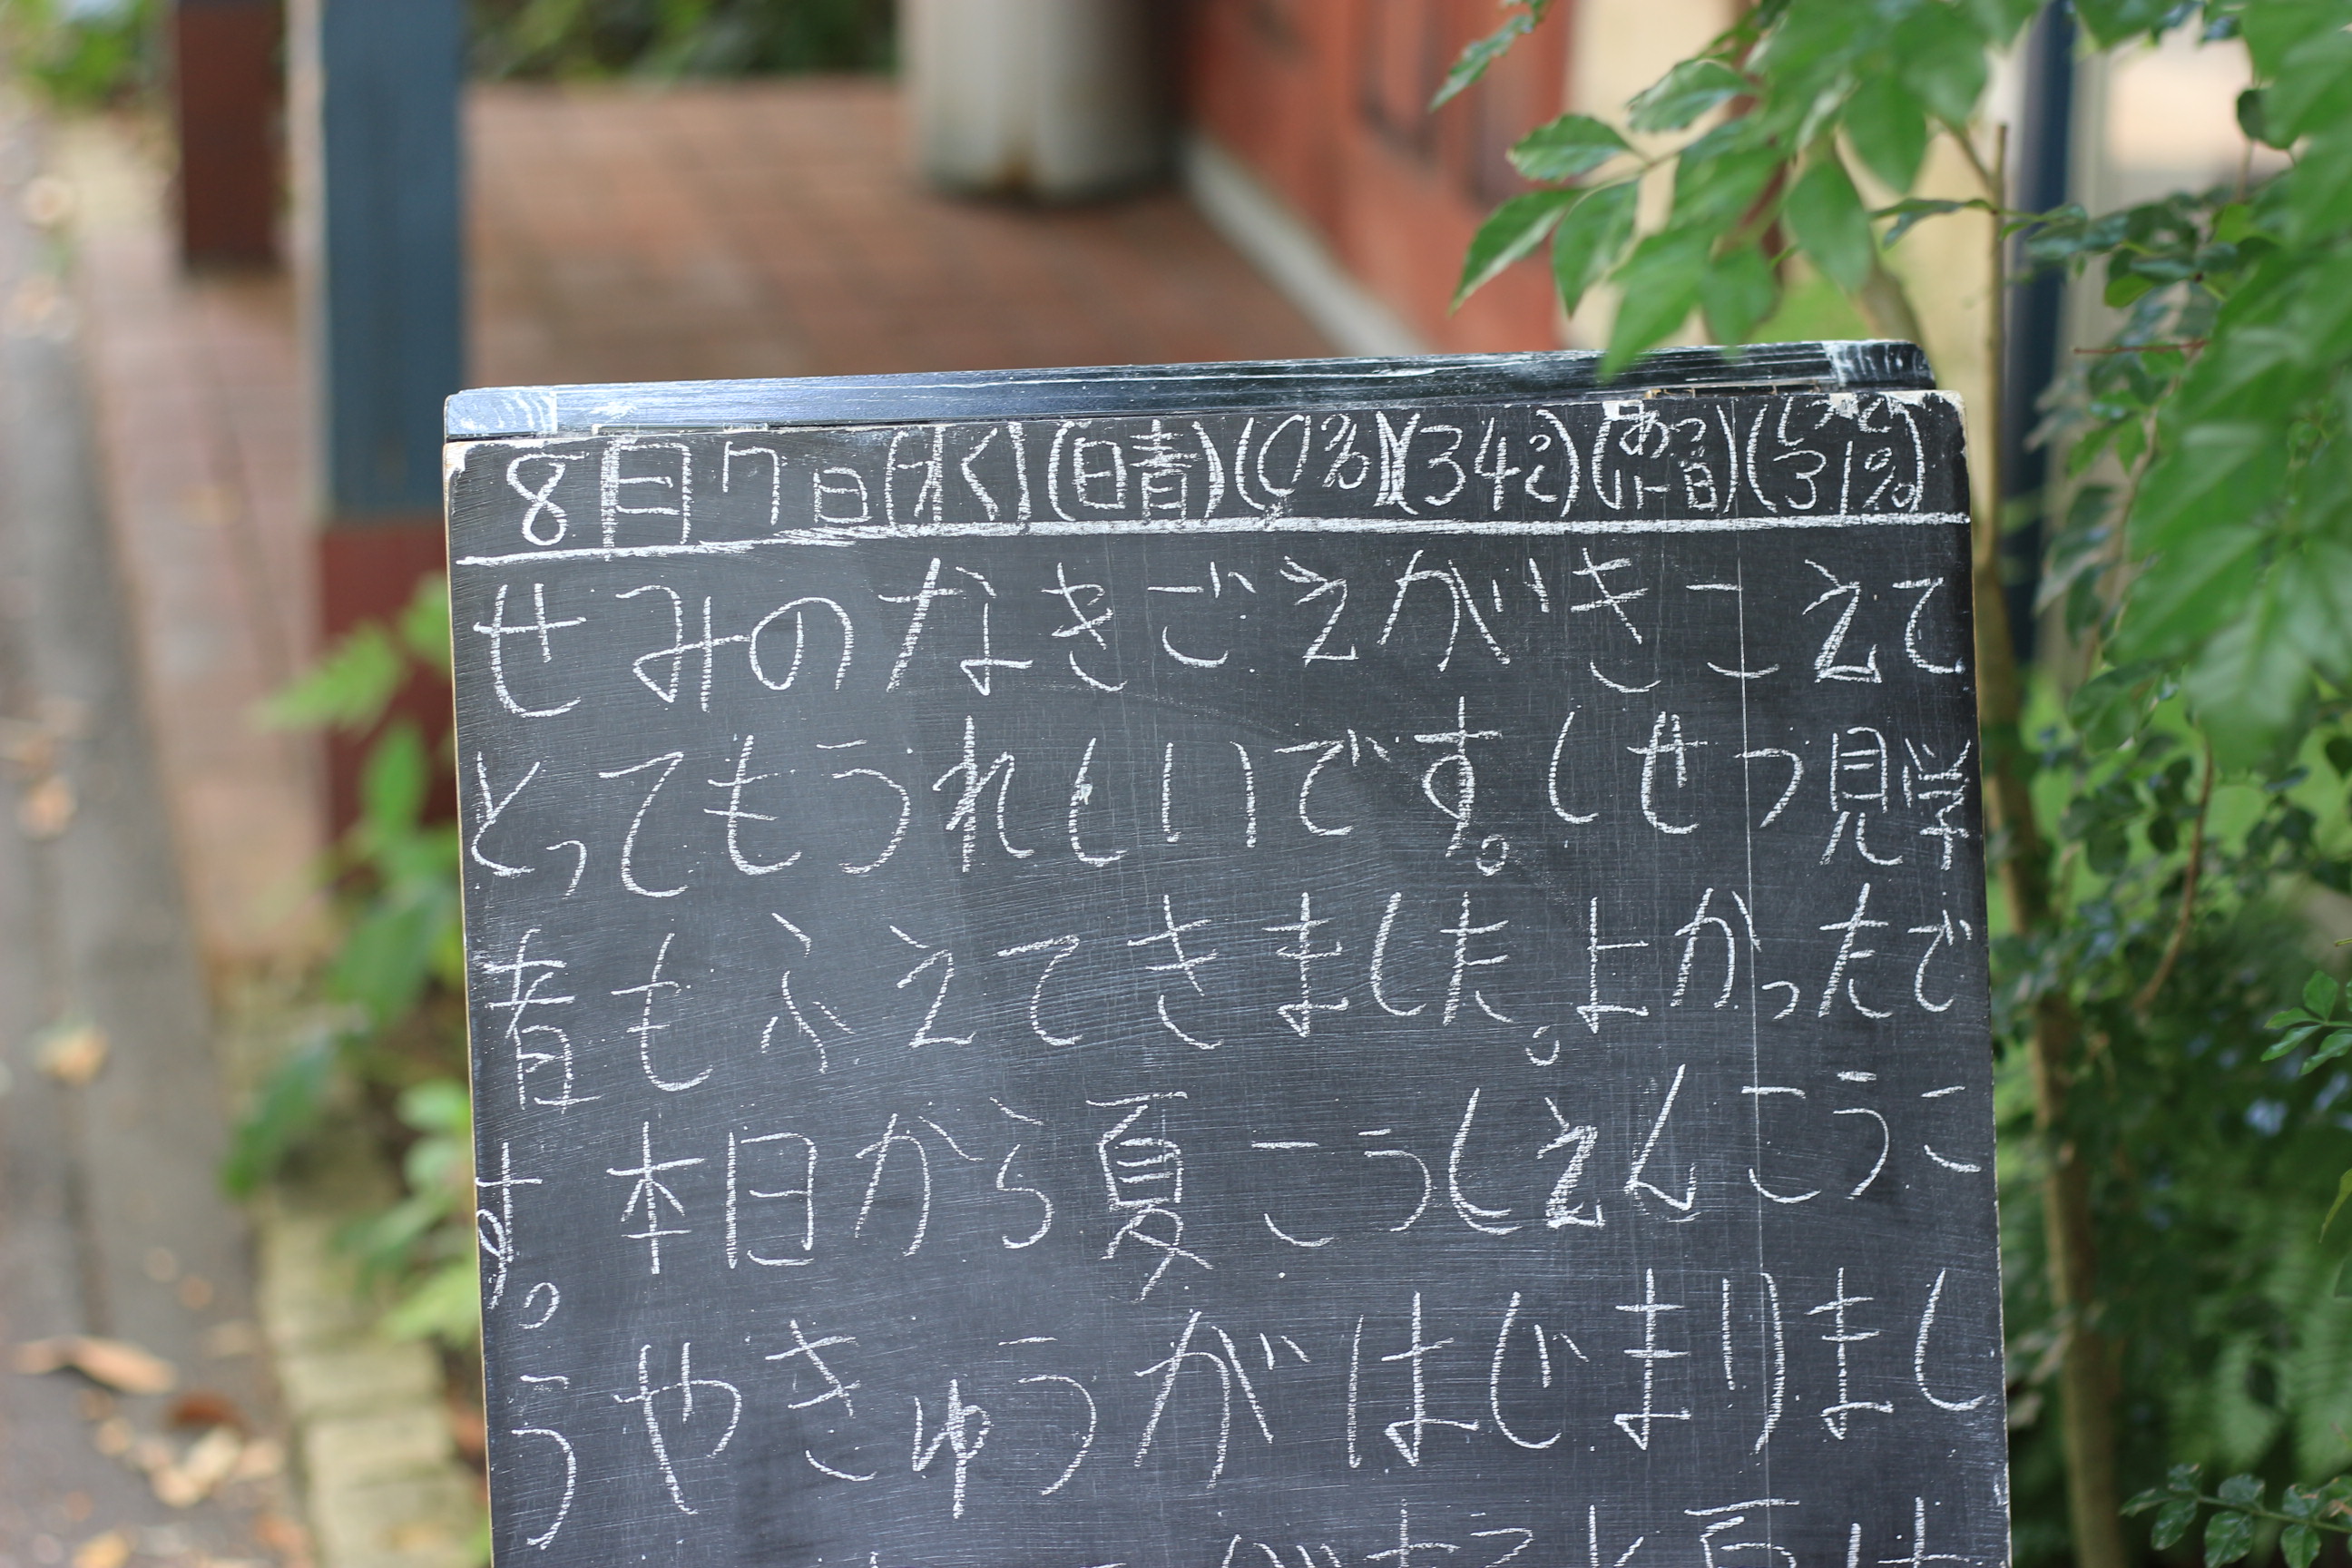 8月7日(水)(晴)(0%)(34℃)(あつい日)(しつど31%)
せみのなきごえがきこえて
とってもうれしいです。しせつ見学
者もふえてきました。よかったで
す。本日から夏こうしえんこうこ
うやきゅうがはじまりまし